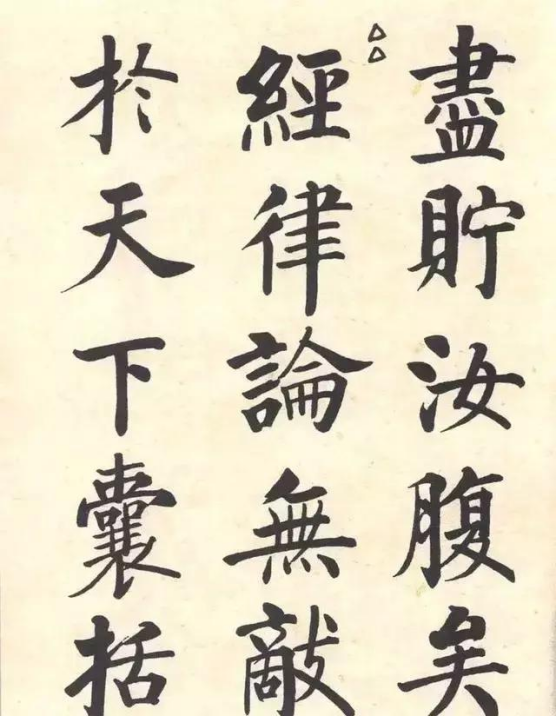 盡貯汝腹矣
經律論無敵
於天下囊括